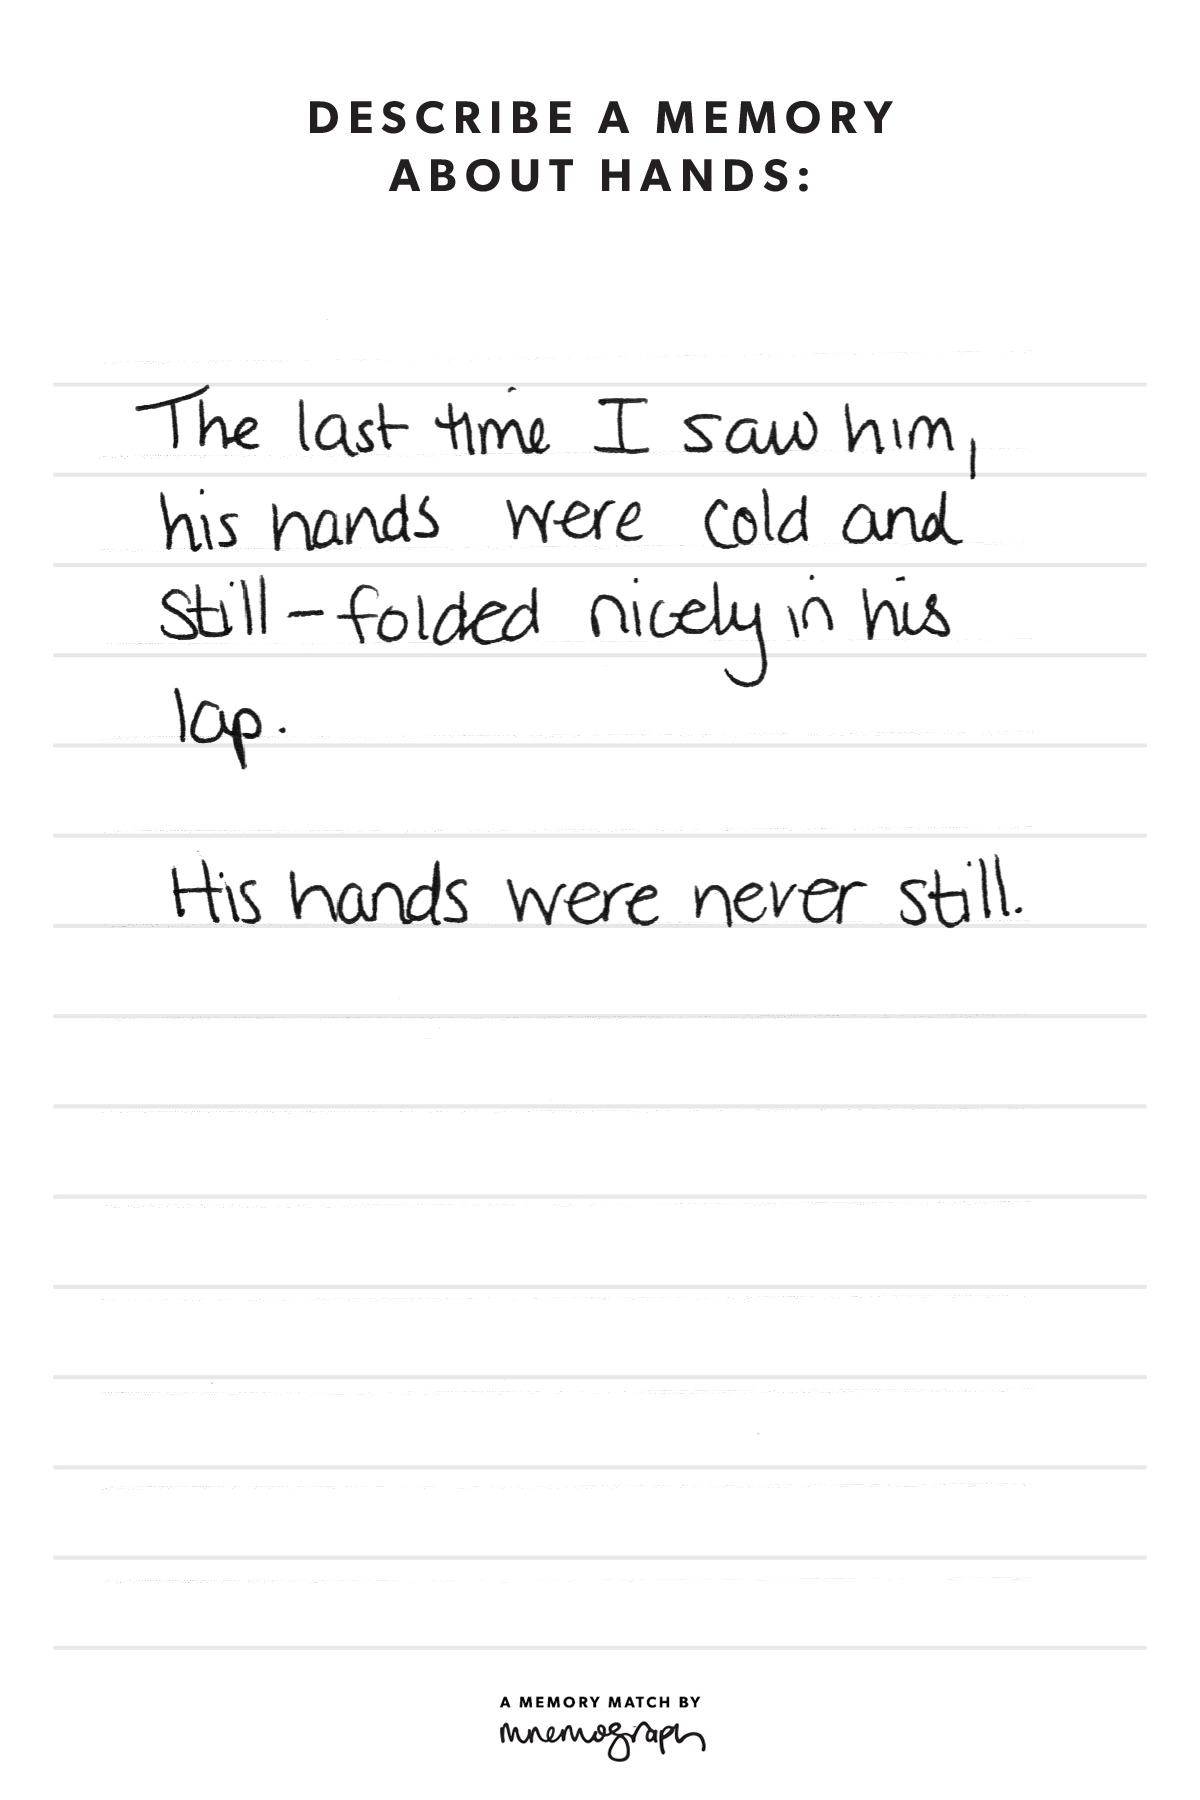 DESCRIBE A MEMORY
ABOUT HANDS:
The last time I saw him,
his hands were cold and
still – folded nicely in his
lap.
His hands were never still.
A MEMORY MATCH BY
mnemograph